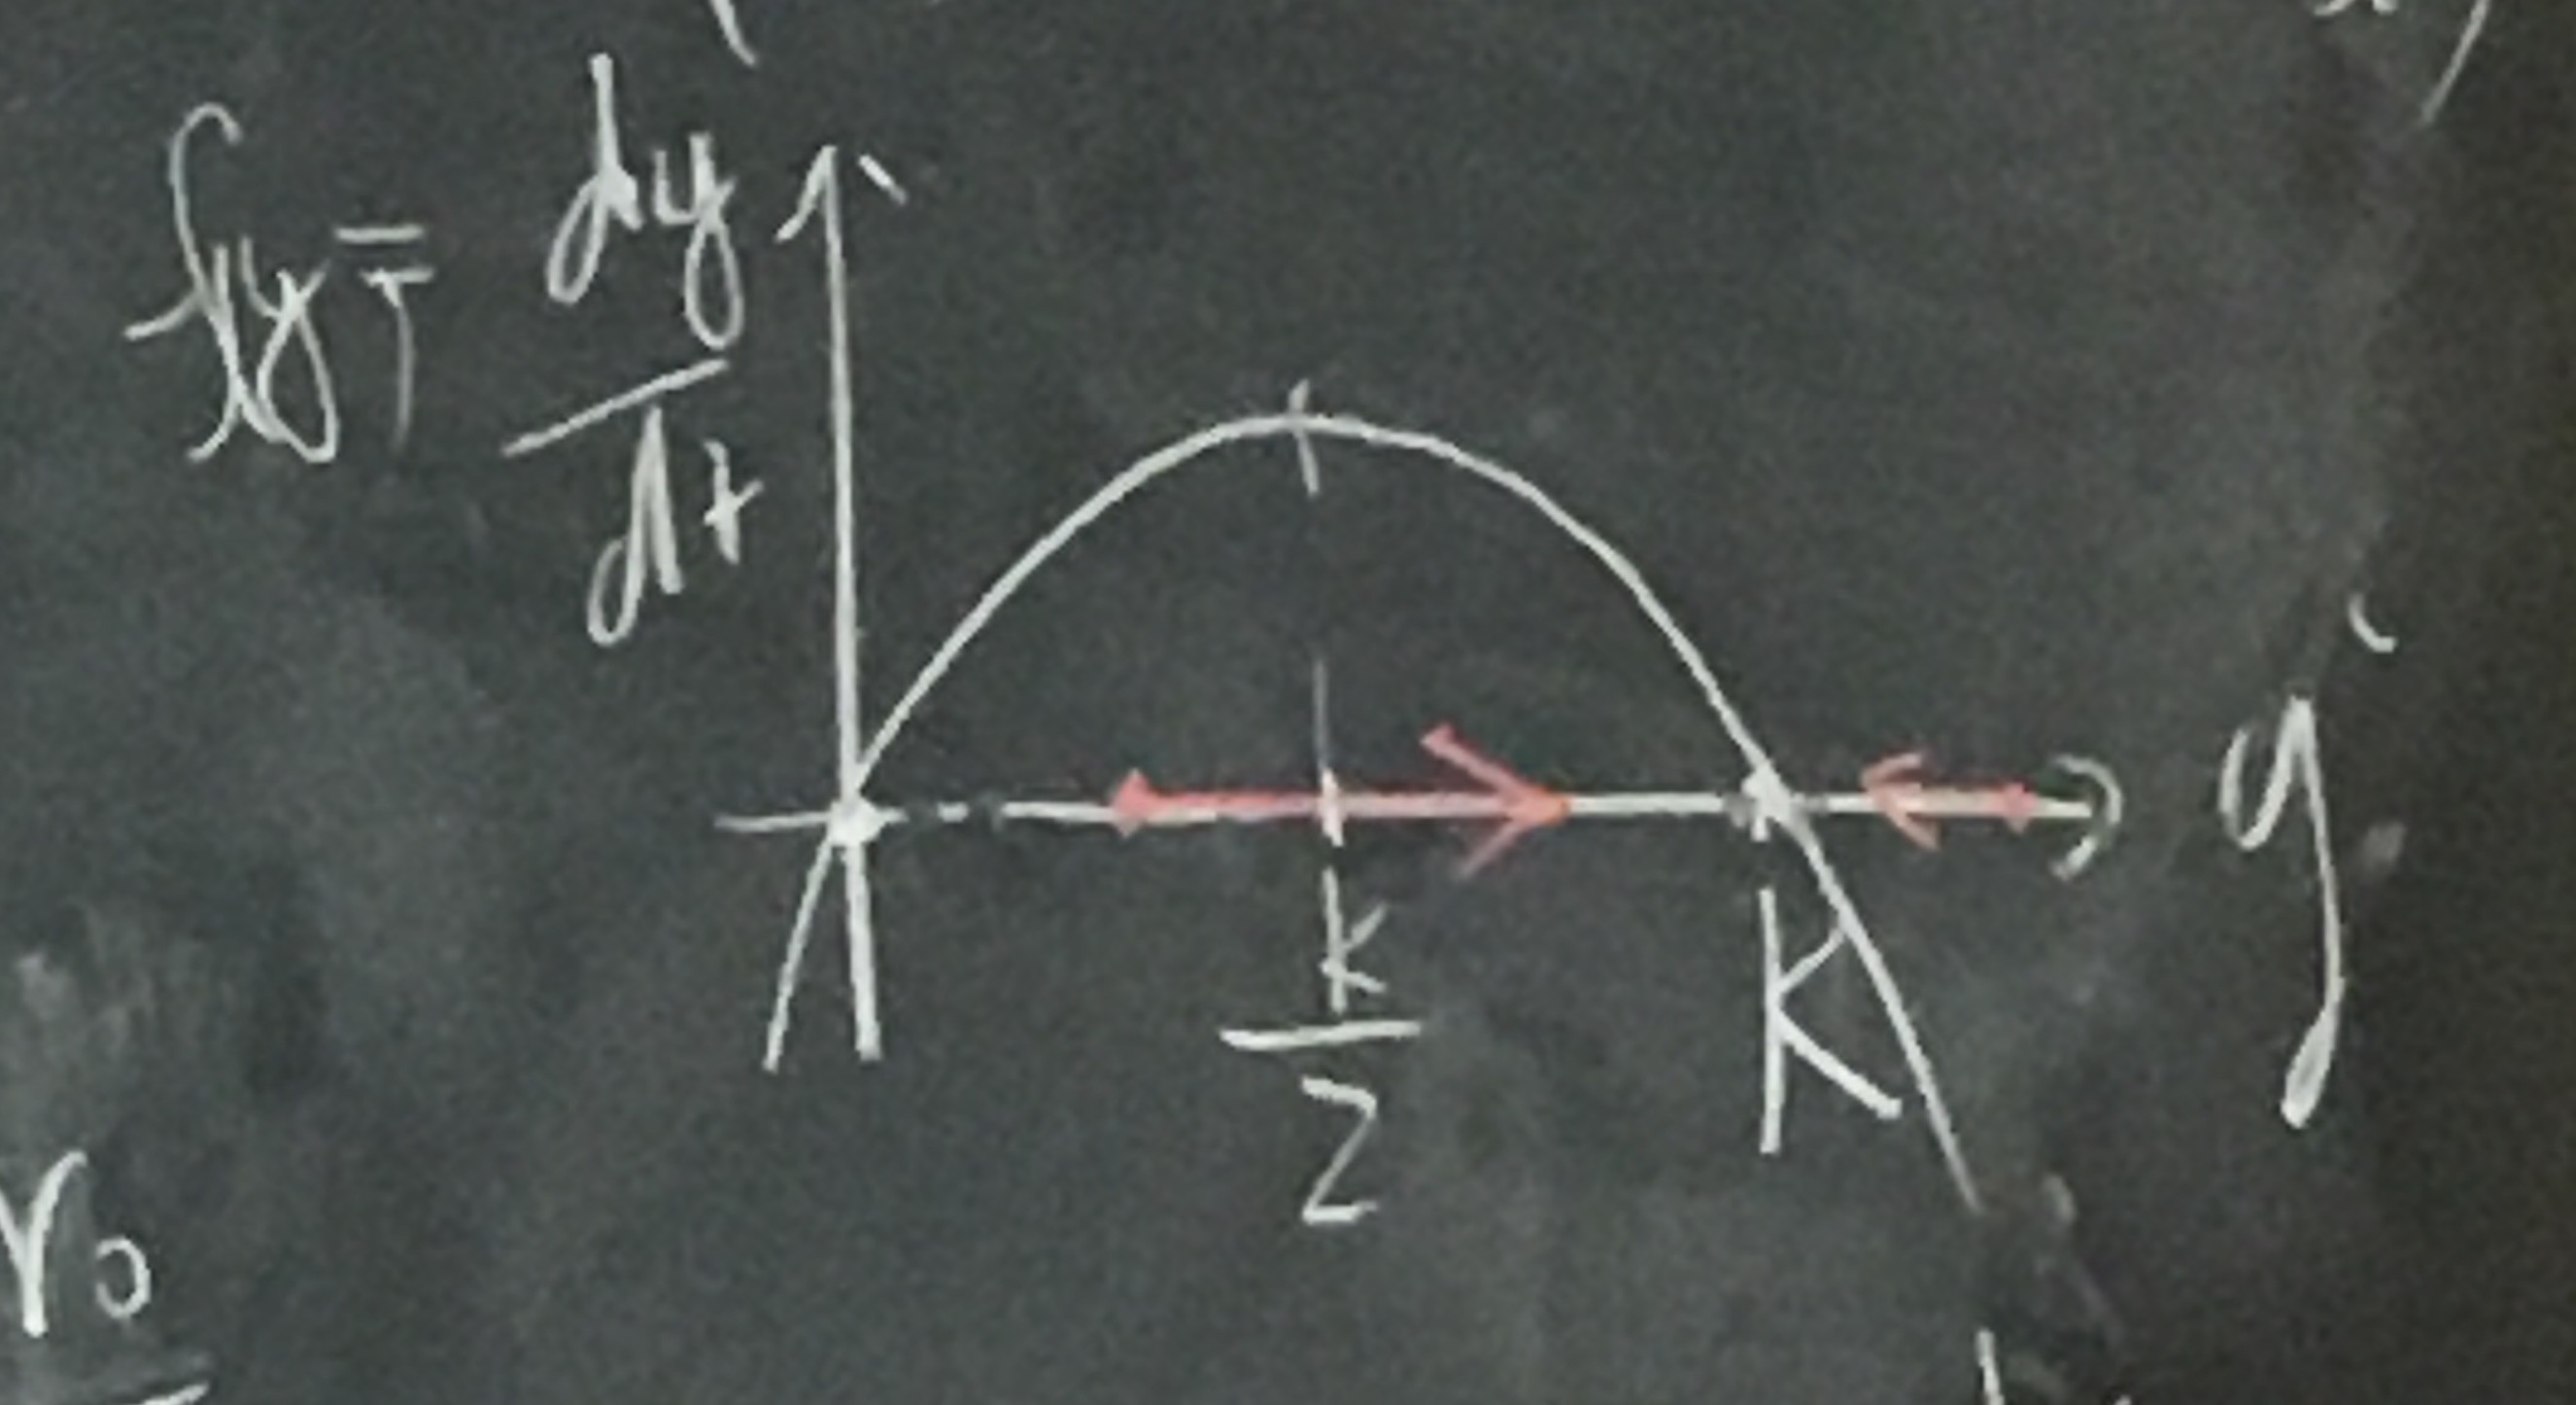 f(y) = dy/dt
y
K/2
K
r0